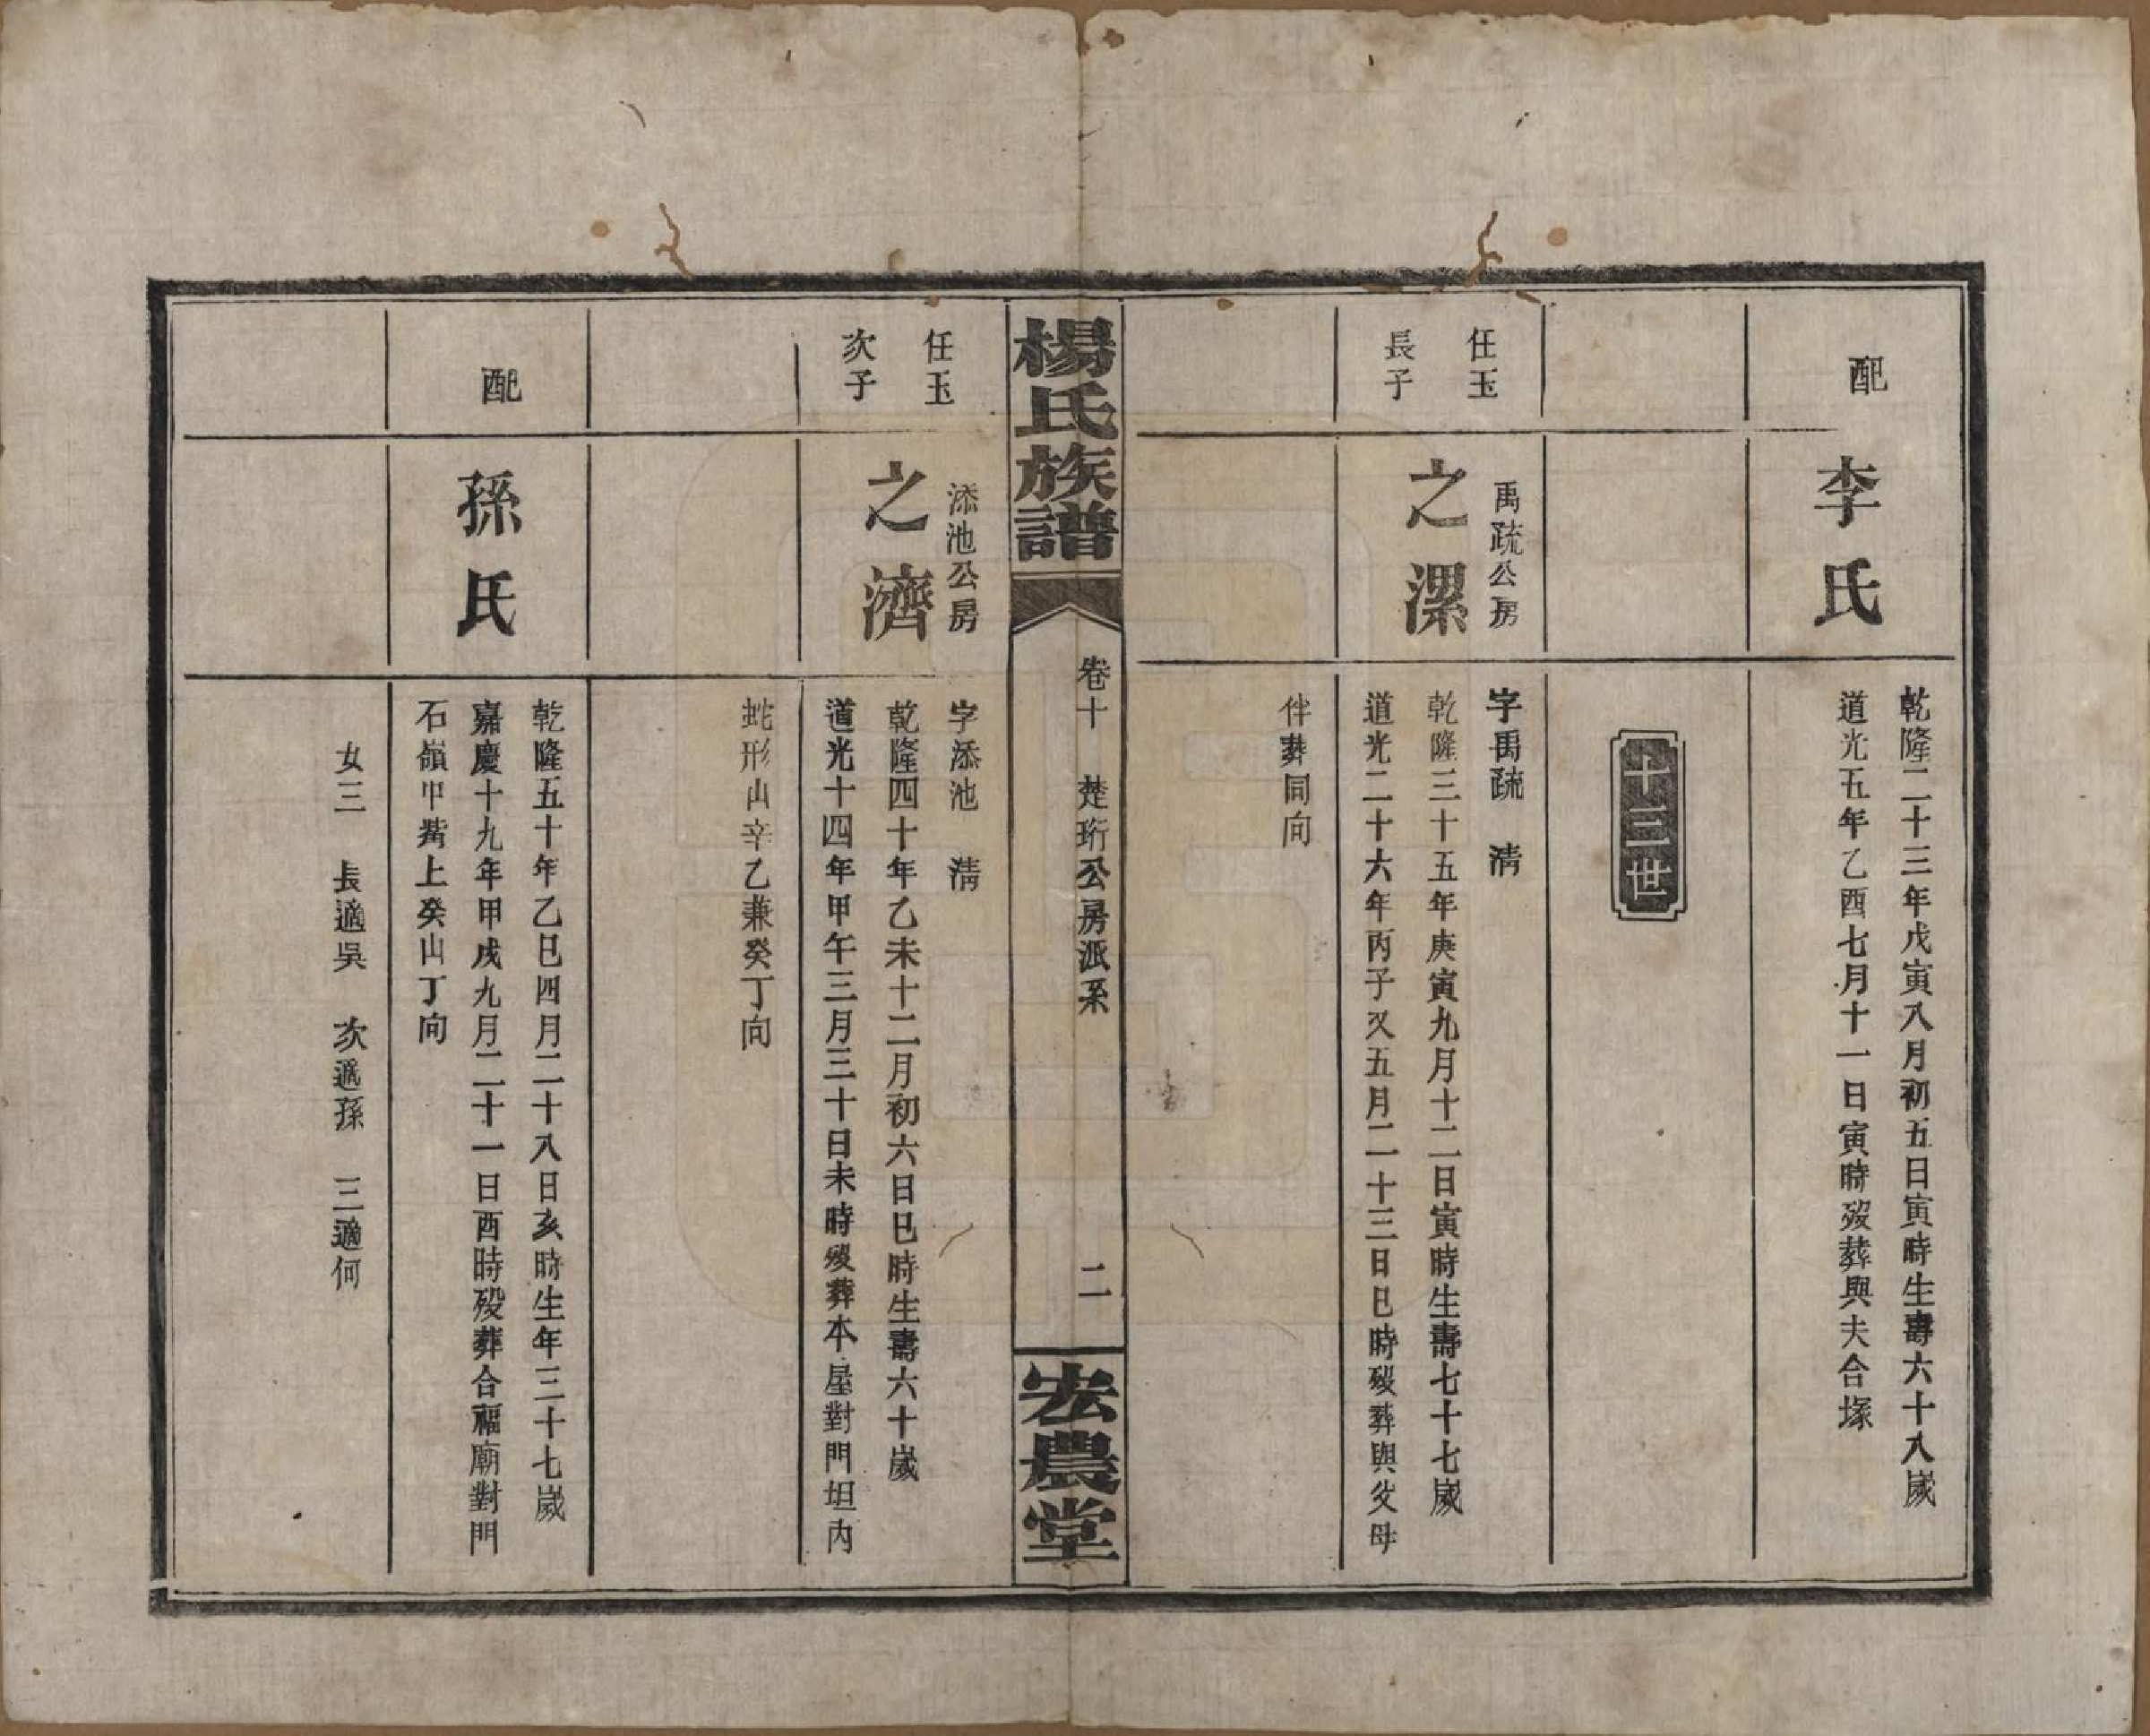 配
李氏
乾隆二十三年戊寅八月初五日寅時生壽六十八歲
道光五年乙酉七月十一日寅時歿葬與夫合塚
十三世
任玉
長子
禹疏公房
之漯
字禹疏　清
乾隆三十五年庚寅九月十二日寅時生壽七十七歲
道光二十六年丙子又五月二十三日巳時歿葬與父母
伴葬同向
楊氏族譜
卷十　楚珩公房派系
二
宏農堂
任玉
次子
添池公房
之濟
字添池　清
乾隆四十年乙未十二月初六日巳時生壽六十歲
道光十四年甲午三月三十日未時歿葬本屋對門坦內
蛇形山辛乙兼癸丁向
配
孫氏
乾隆五十年乙巳四月二十八日亥時生年三十七歲
嘉慶十九年甲戌九月二十一日酉時歿葬合福廟對門
石嶺甲嘴上癸山丁向
女三　長適吳　次適孫　三適何